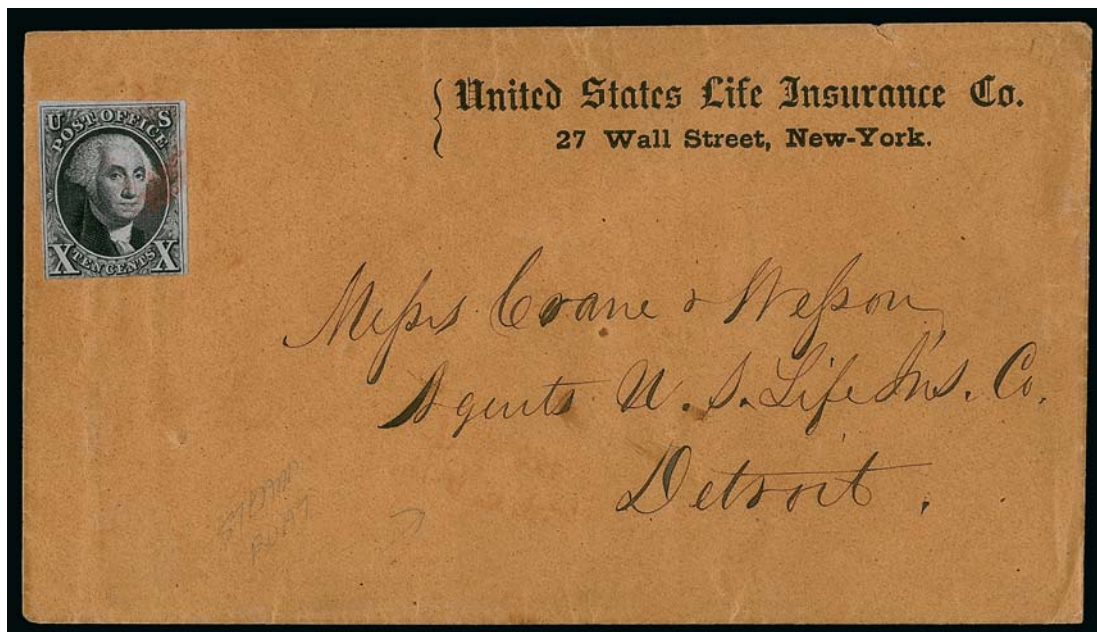 United States Life Insurance Co.
27 Wall Street, New-York.
U S
POST OFFICE
X TEN CENTS X
Messrs Crane & Wesson
Agents U. S. Life Ins. Co.
Detroit.